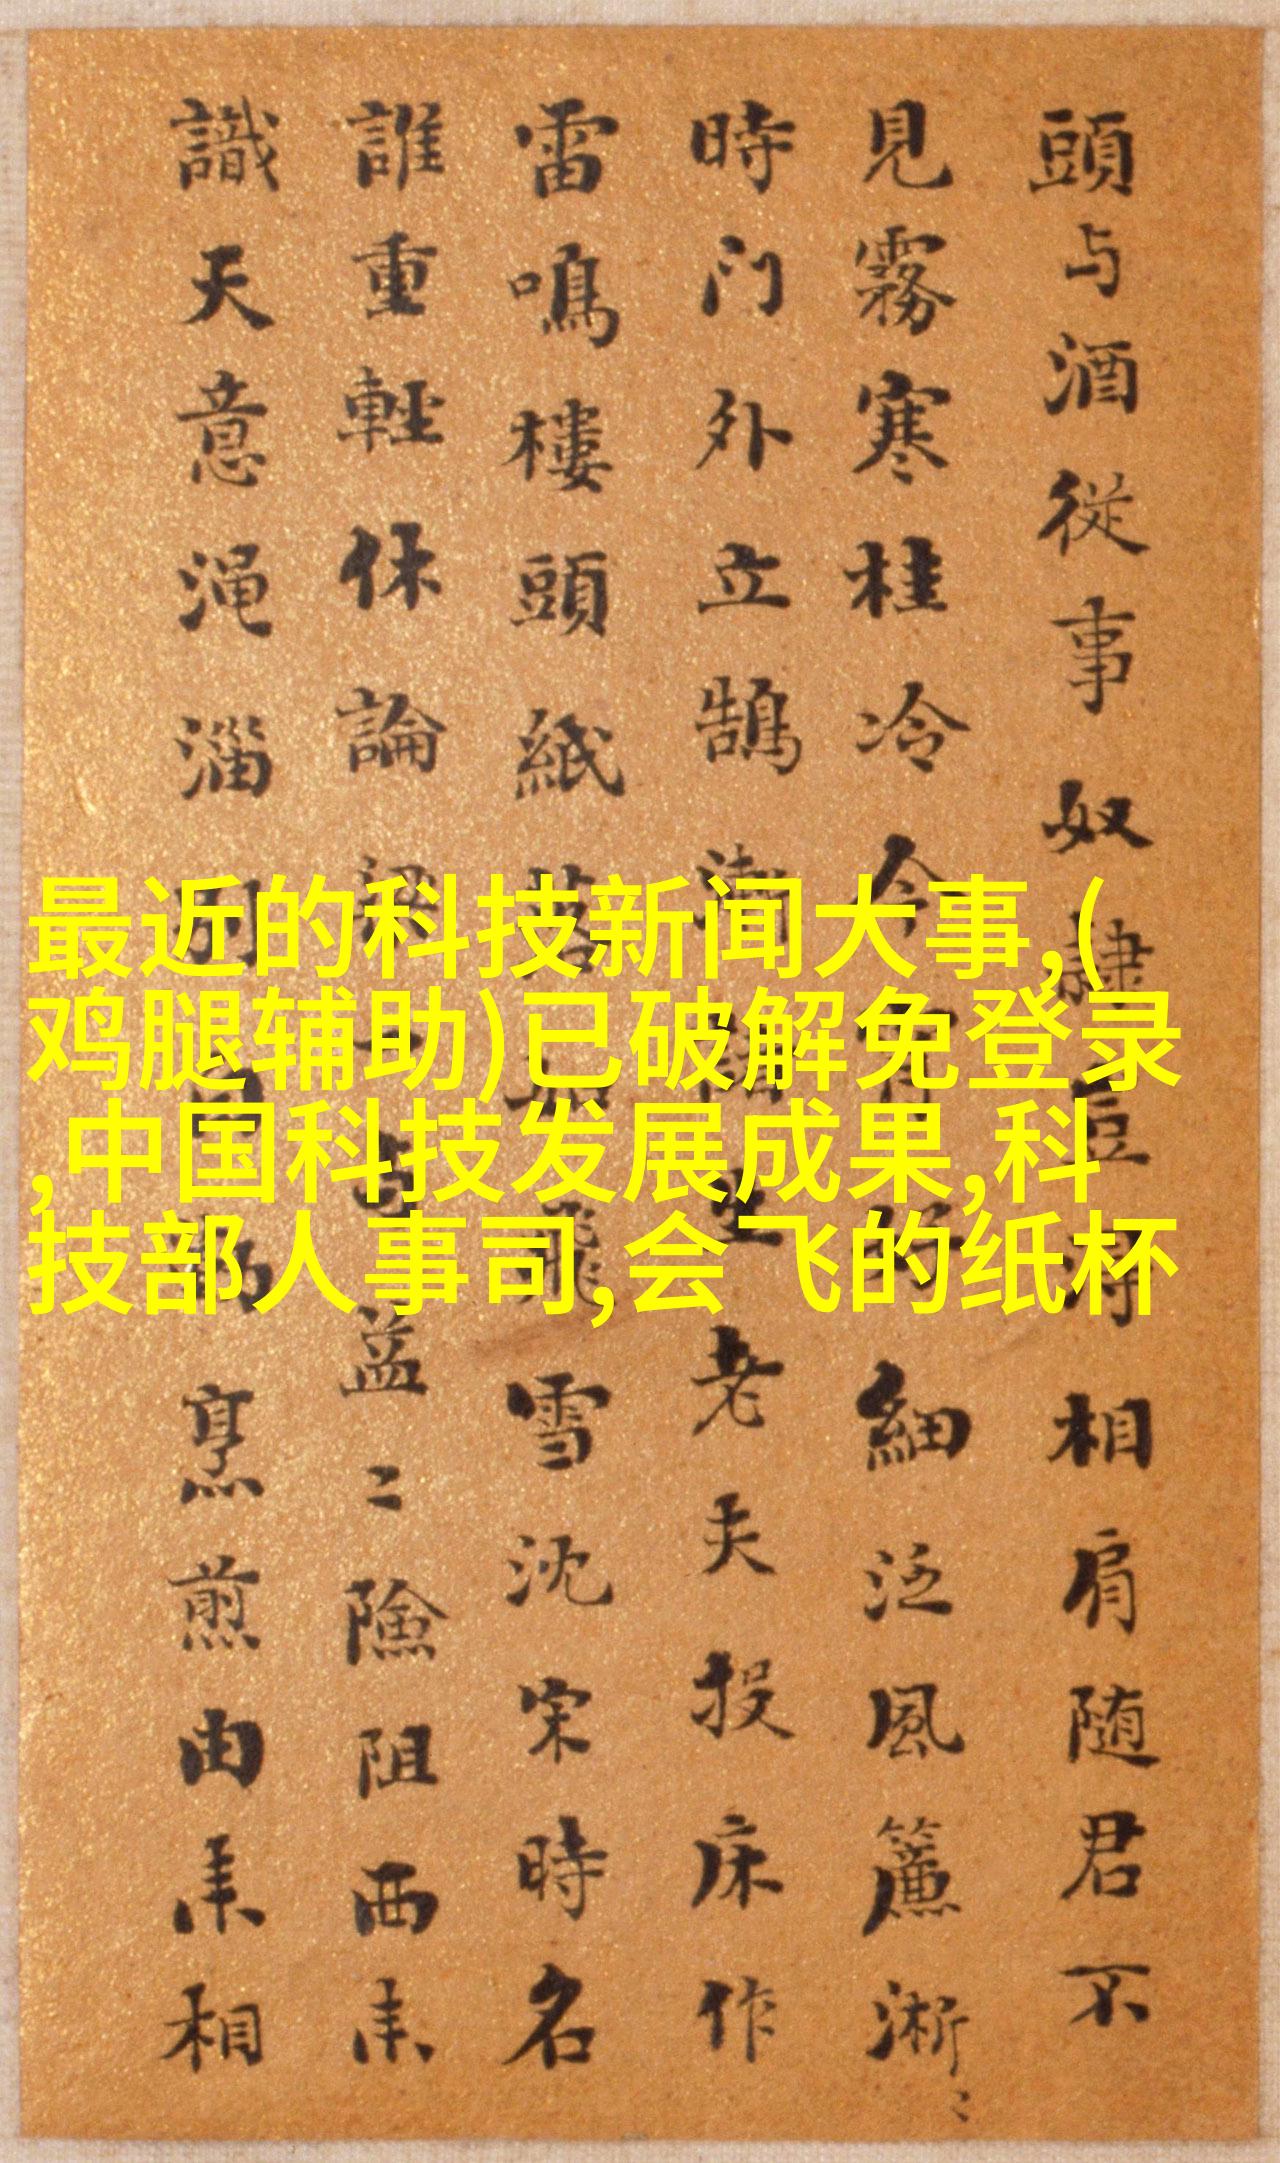 頭与酒從事奴隸豆相肩随君不
見霧寒桂冷今細泛風簾淅〻
時门外立鵠老夫投床作
雷鳴樓頭紙落如飛雪沈宋時名
誰重輕休論益〻險阻西来
識天意渑淄別烹煎由来相
最近的科技新闻大事,(
鸡腿辅助)已破解免登录
,中国科技发展成果,科
技部人事司,会飞的纸杯